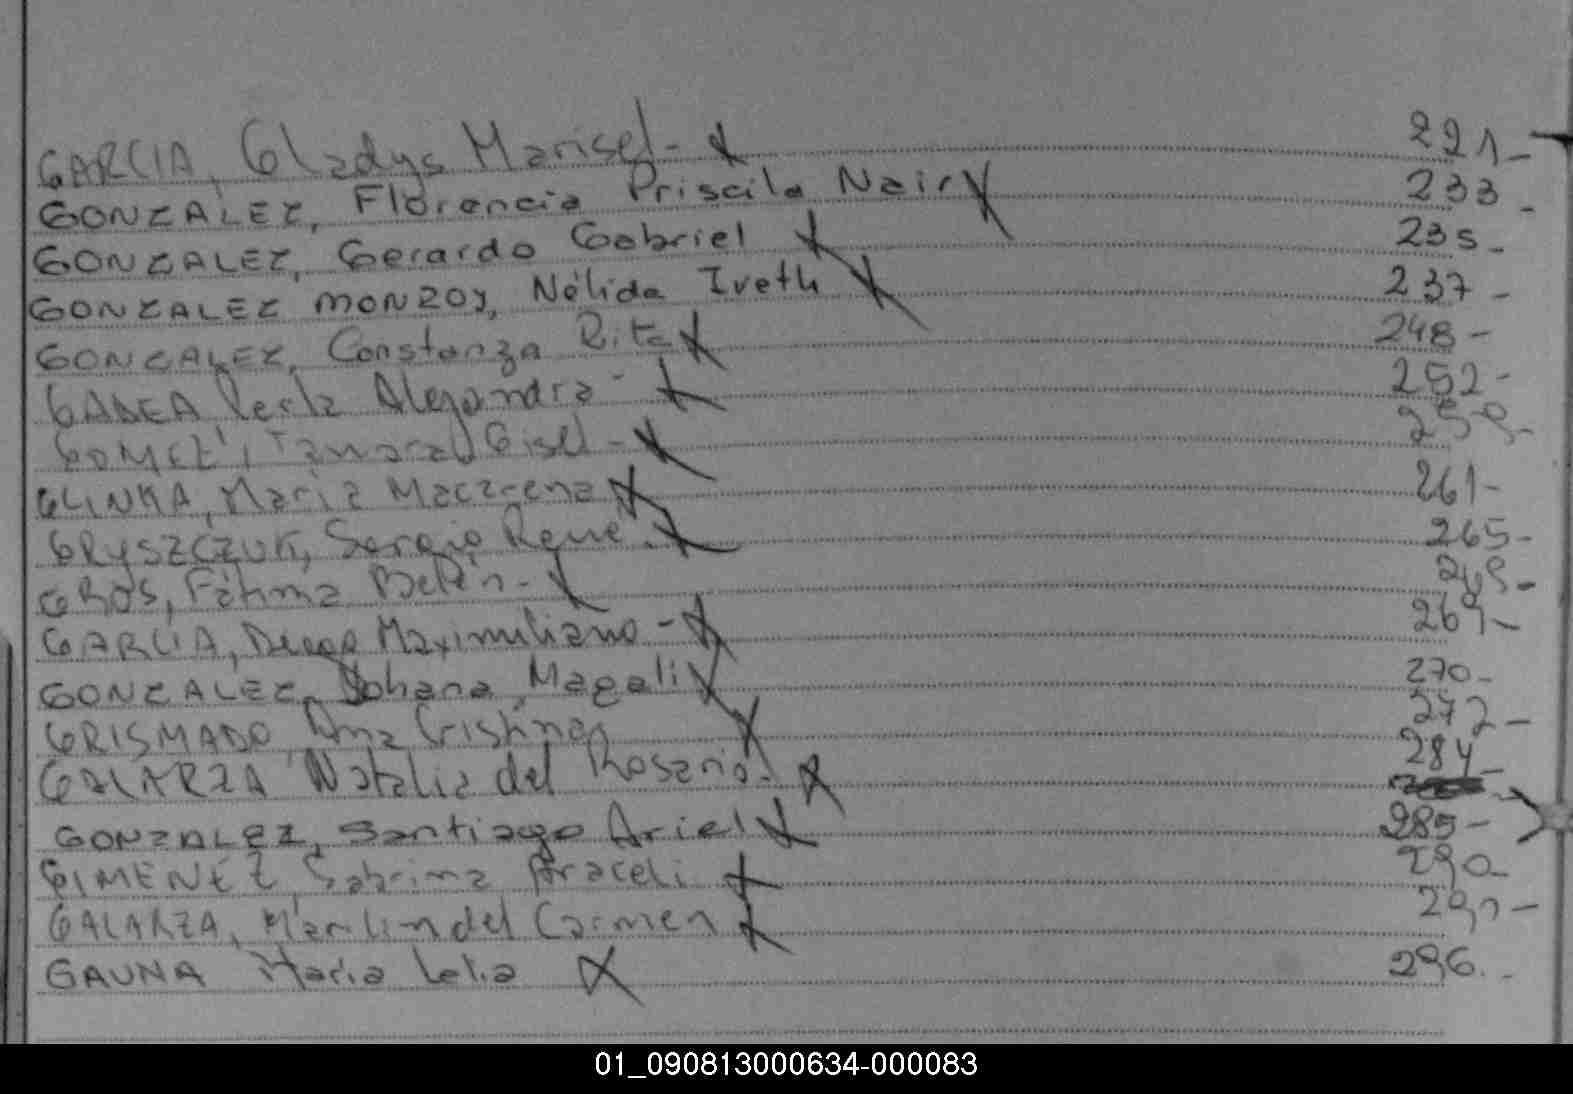 GARCIA, Gladys Marisel - 221 -
GONZALEZ, Florencia Priscila Nair 233 -
GONZALEZ, Gerardo Gabriel 235 -
GONZALEZ MONZOY, Nélida Iveth 237 -
GONZALEZ, Constanza Rita 248 -
GADEA Perla Alejandra - 252 -
GOMEZ, Tamara Gisel - 258 -
GLINKA, Maria Macarena 261 -
GRYSZCZUK, Sergio René. 265 -
GROS, Fátima Belén -
GARCIA, Diego Maximiliano - 269 -
GONZALEZ, Yohana Magali 270 -
GRISMADO Ana Cristina 272 -
GALARZA Natalia del Rosario. 284 -
GONZALEZ, Santiago Ariel 285 -
GIMENEZ, Sabrina Araceli 290
GALARZA, Marlin del Carmen 291 -
GAUNA Maria Lelia 296 -
01_090813000634-000083